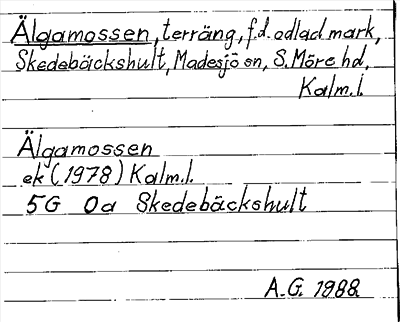 Älgamossen, terräng, f.d. odlad mark,
Skedebäckshult, Madesjö sn, S. Möre hd,
Kalm.l.
Älgamossen
ek (1978) Kalm.l.
5G 0a Skedebäckshult
A.G. 1988